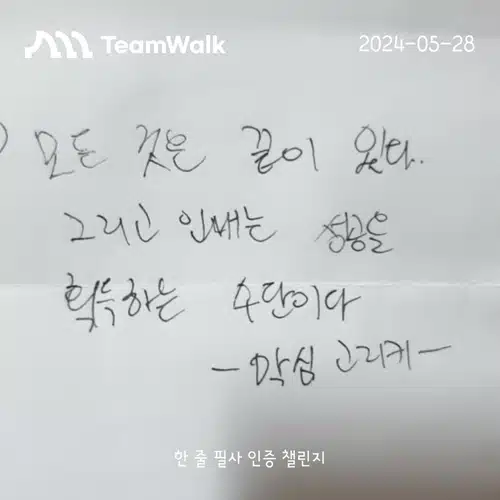 TeamWalk
2024-05-28
) 모든 것은 끝이 있다.
그리고 인내는 성공을
획득하는 수단이다
- 막심 고리키 -
한 줄 필사 인증 챌린지